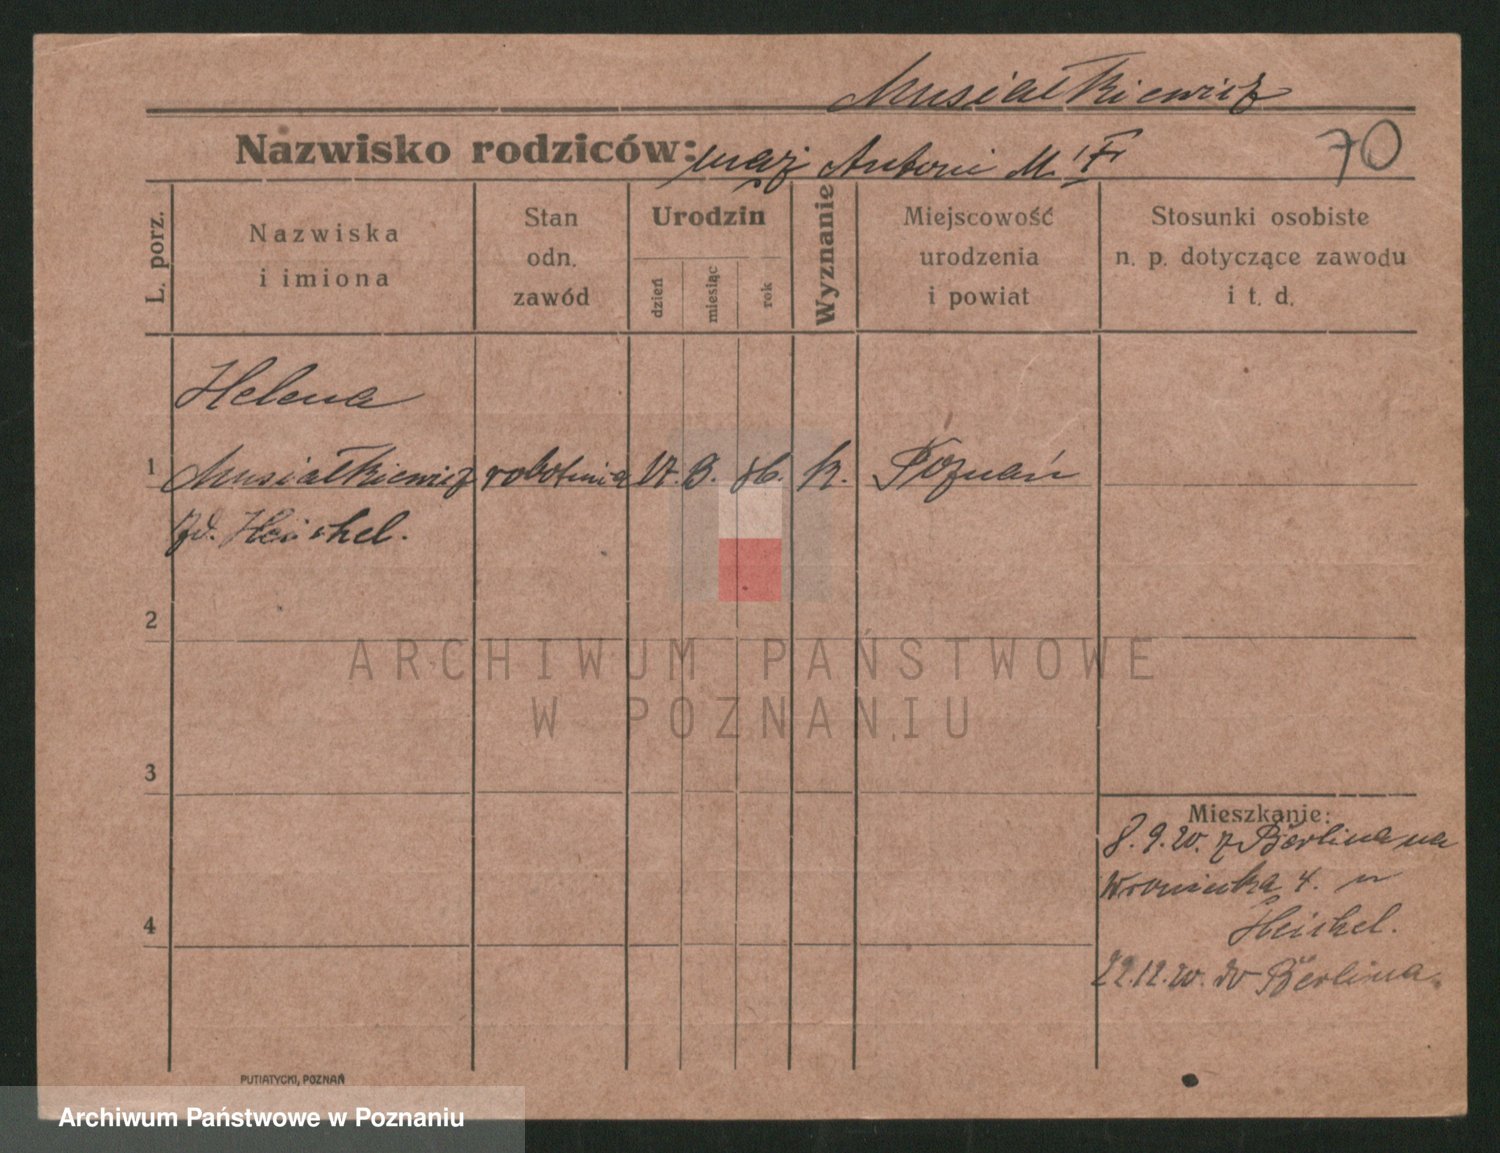 Musiałkiewicz
Nazwisko rodziców: mąż Antoni M.
70
L. porz.
Nazwiska
i imiona
Stan
odn.
zawód
Urodzin
dzień
miesiąc
rok
Wyznanie
Miejscowość
urodzenia
i powiat
Stosunki osobiste
n. p. dotyczące zawodu
i t. d.
Helena
1 Musiałkiewicz robotnica k. Poznań
zd. Heichel.
2
ARCHIWUM PAŃSTWOWE
W POZNANIU
3
Mieszkanie:
8.9.20. z Berlina na
4. u
Heichel.
4
22.12.20. do Berlina.
PUTIATYCKI, POZNAŃ
Archiwum Państwowe w Poznaniu